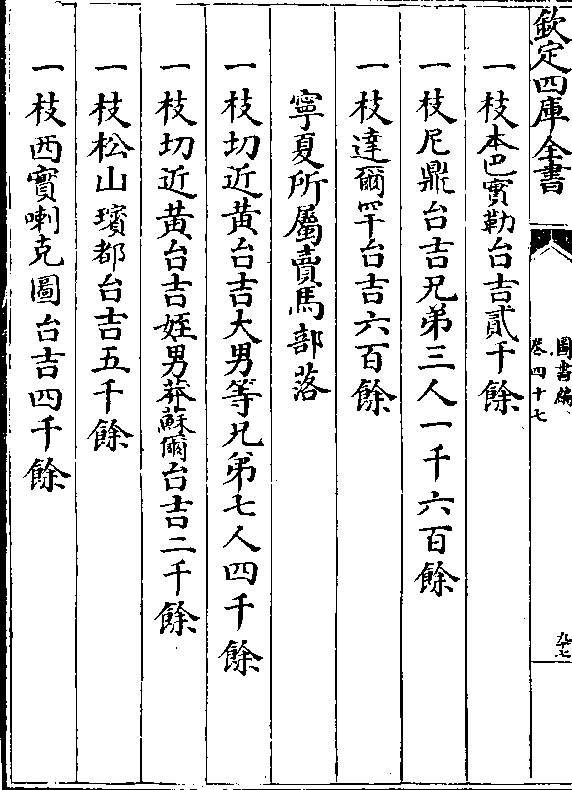 欽定四庫全書
圖書編
卷四十七
九十七
一枝本巴實勒台吉貳千餘
一枝尼鼎台吉兄弟三人一千六百餘
一枝達爾罕台吉六百餘
寧夏所屬賣馬部落
一枝切近黃台吉大男等兄弟七人四千餘
一枝切近黃台吉姪男莽蘇爾台吉二千餘
一枝松山賓都台吉五千餘
一枝西實喇克圖台吉四千餘